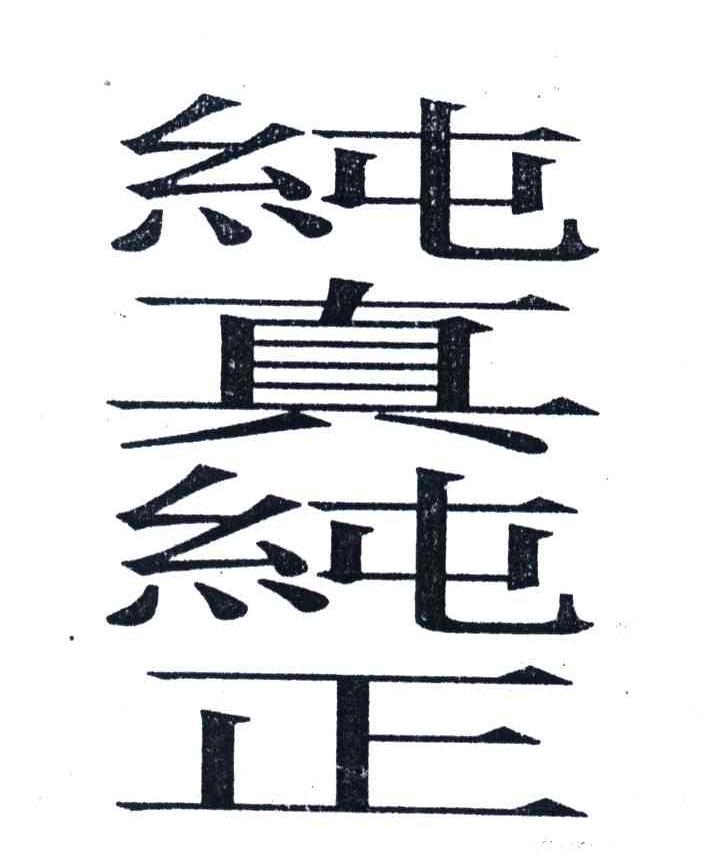 純真純正